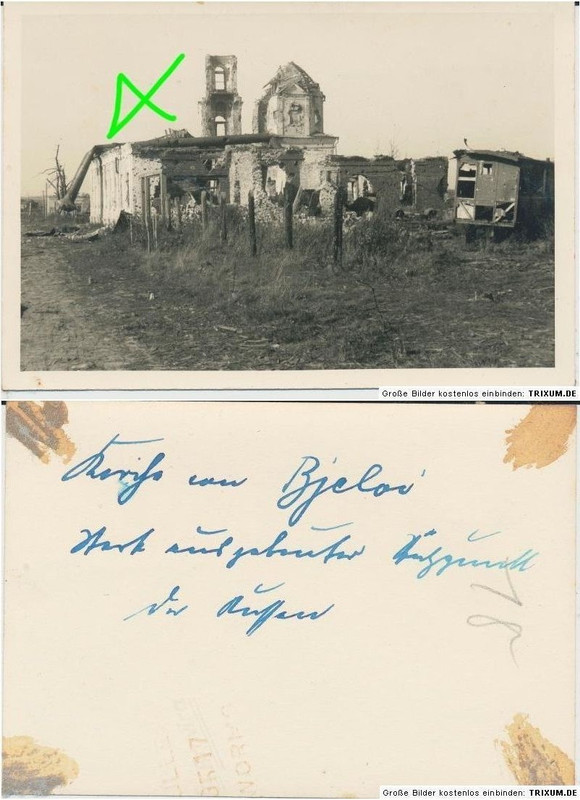 Große Bilder kostenlos einbinden: TRIXUM.DE
Kirche von Bjeloi
Stark ausgebauter Stützpunkt
der Russen
Große Bilder kostenlos einbinden: TRIXUM.DE